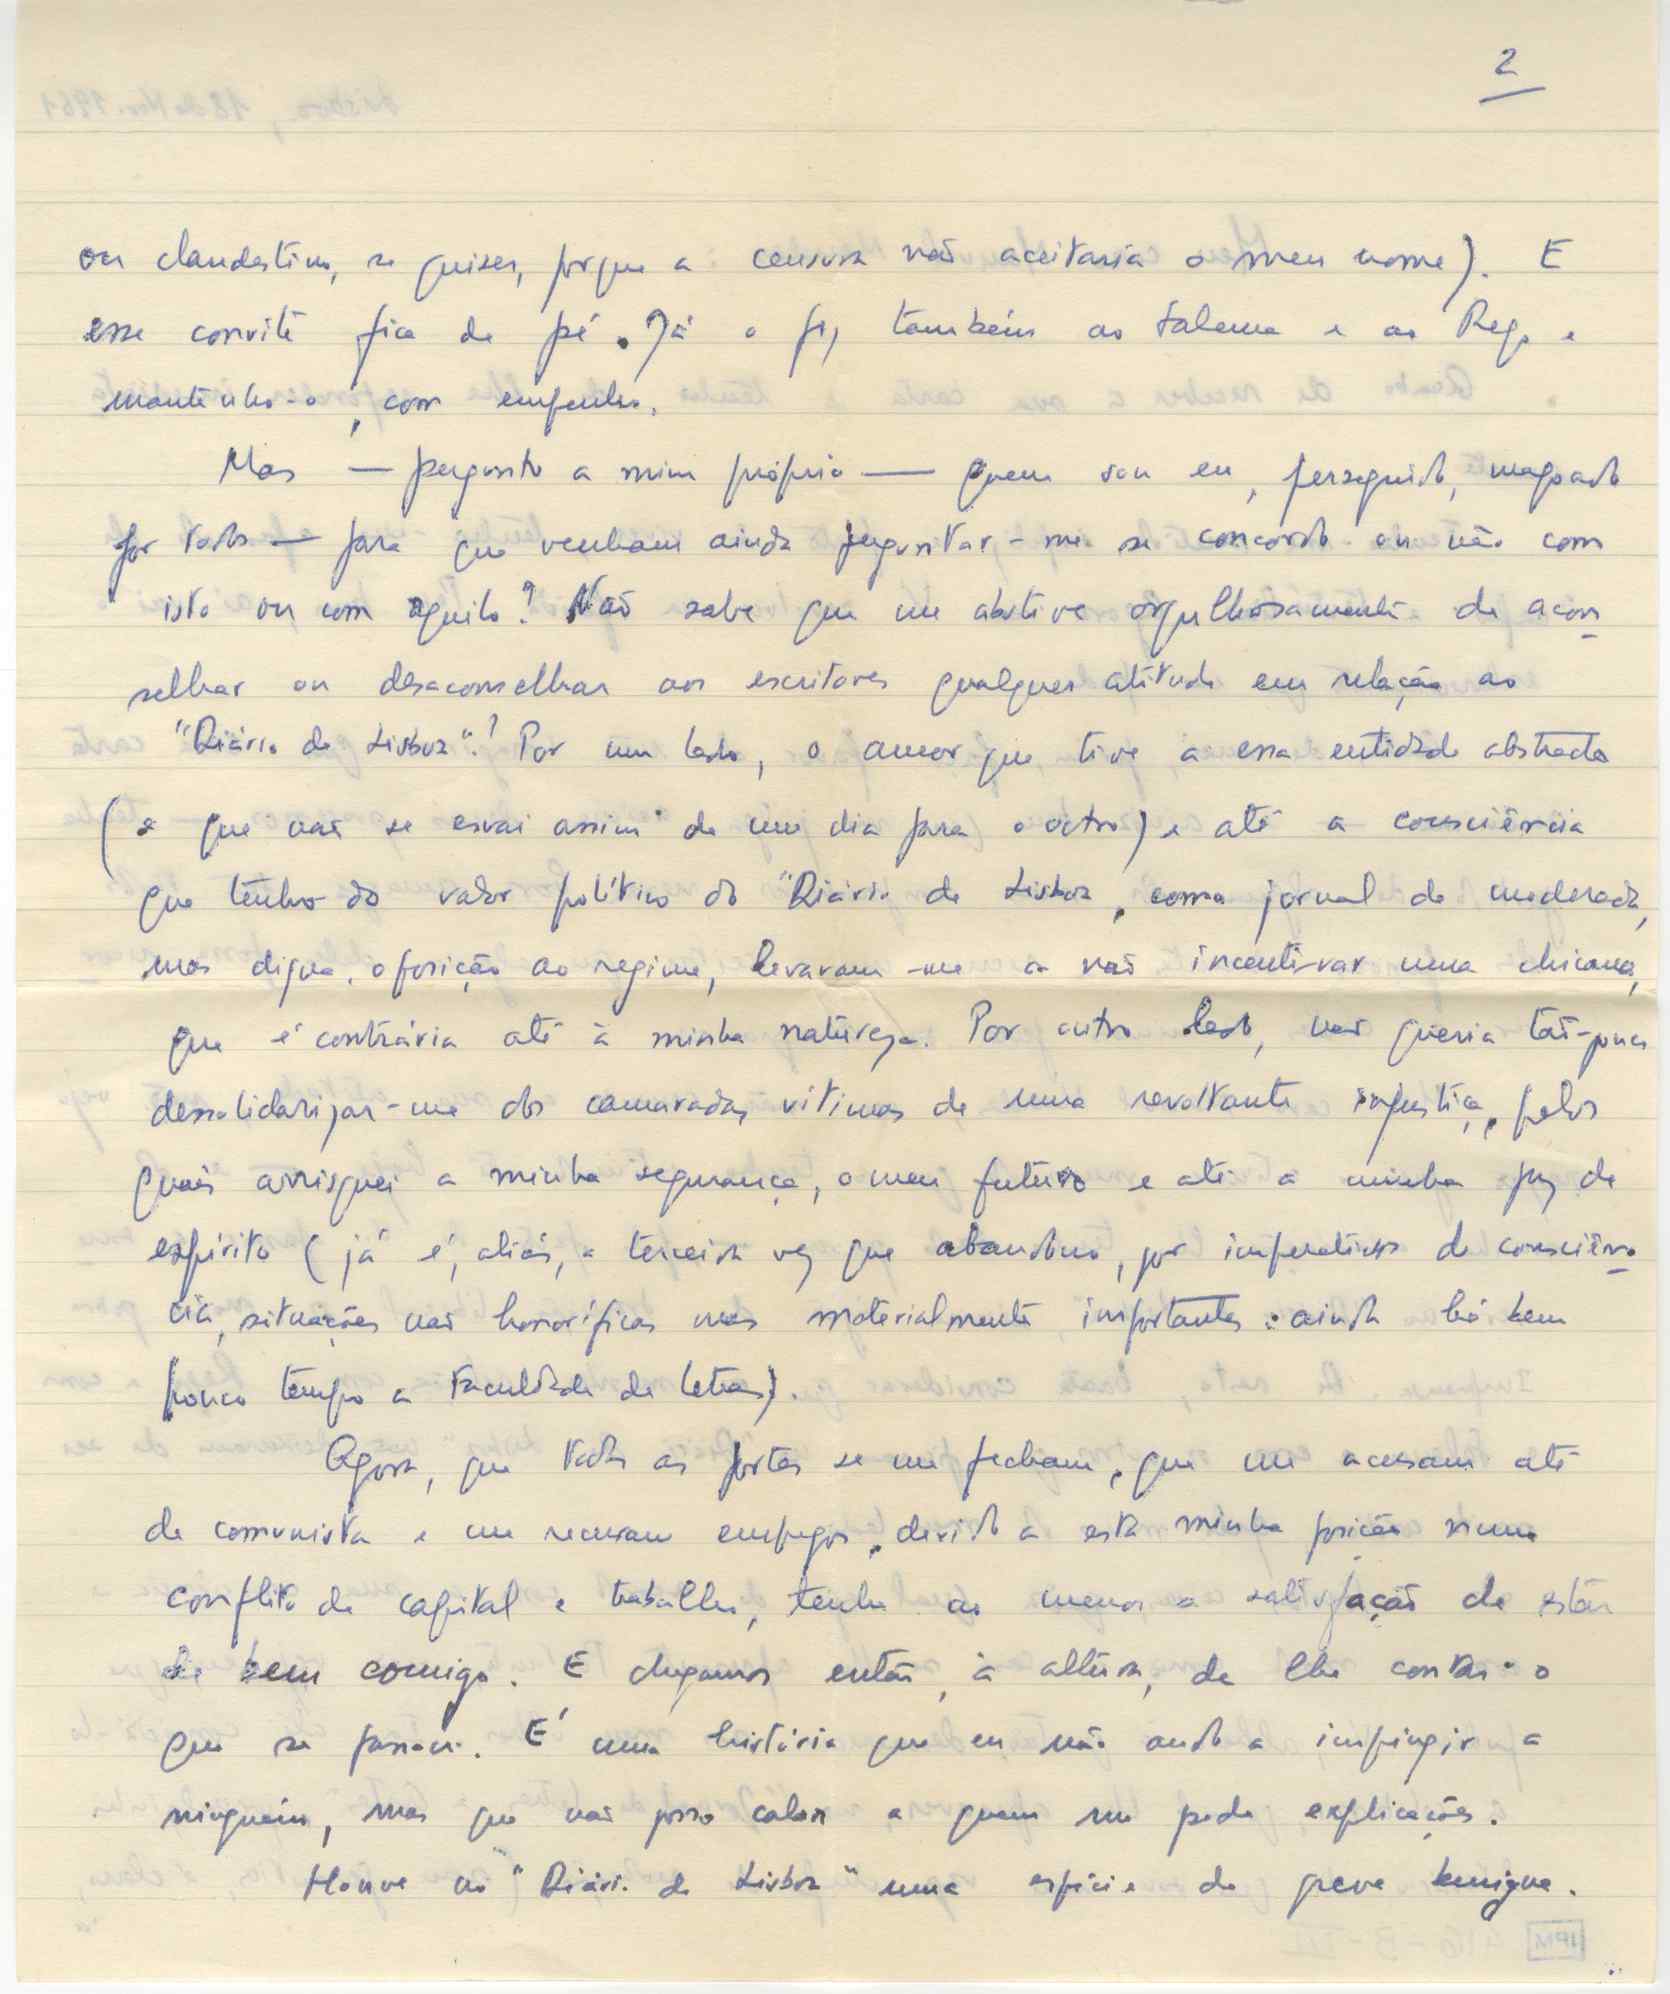 2
ou clandestino, se quiser, porque a censura não aceitaria o meu nome). E
esse convite fica de pé. Já o fiz também ao Salema e ao Rego e
mantenho-o, com empenho.
Mas — pergunto a mim próprio — quem sou eu, perseguido, magoado
por todos — para que venham ainda perguntar-me se concordo ou não com
isto ou com aquilo? Não sabe que me abstive orgulhosamente de acon
selhar ou desaconselhar aos escritores qualquer atitude em relação ao
"Diário de Lisboa"? Por um lado, o amor que tive a essa entidade abstracta
(e que não se esvai assim de um dia para o outro) e até a consciência
que tenho do valor político do "Diário de Lisboa, como jornal de moderada,
mas digna, oposição ao regime, levaram-me a não incentivar uma chicana,
que é contrária até à minha natureza. Por outro lado, não queria tão-pouco
dessolidarizar-me dos camaradas, vítimas de uma revoltante injustiça, pelos
quais arrisquei a minha segurança, o meu futuro e até a minha paz de
espírito (já é, aliás, a terceira vez que abandono, por imperativos de consciên
cia, situações não honoríficas mas materialmente importantes: ainda há bem
pouco tempo a Faculdade de Letras).
Agora, que todas as portas se me fecham, que me acusam até
de comunista e me recusam empregos, devido a esta minha posição num
conflito de capital e trabalho, tenho ao menos a satisfação de estar
de bem comigo. E chegamos então, à altura, de lhe contar o
que se passou. É uma história que eu não ando a impingir a
ninguém, mas que não posso calar a quem me pede explicações.
Houve no "Diário de Lisboa" uma espécie de greve benigna.